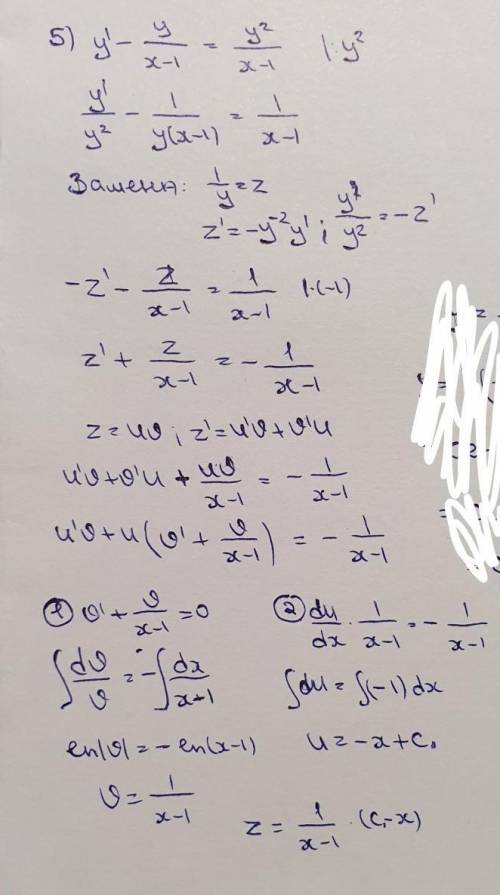 5) y' - y/(x-1) = y²/(x-1) |: y²
y'/y² - 1/(y(x-1)) = 1/(x-1)
Замена: 1/y = z
z' = -y⁻²y' ; y'/y² = -z'
-z' - z/(x-1) = 1/(x-1) |·(-1)
z' + z/(x-1) = - 1/(x-1)
z = uv ; z' = u'v + v'u
u'v + v'u + uv/(x-1) = - 1/(x-1)
u'v + u(v' + v/(x-1)) = - 1/(x-1)
① v' + v/(x-1) = 0
∫dv/v = -∫dx/(x-1)
ln|v| = -ln(x-1)
v = 1/(x-1)
② du/dx · 1/(x-1) = - 1/(x-1)
∫du = ∫(-1)dx
u = -x + C₁
z = 1/(x-1) · (C₁-x)